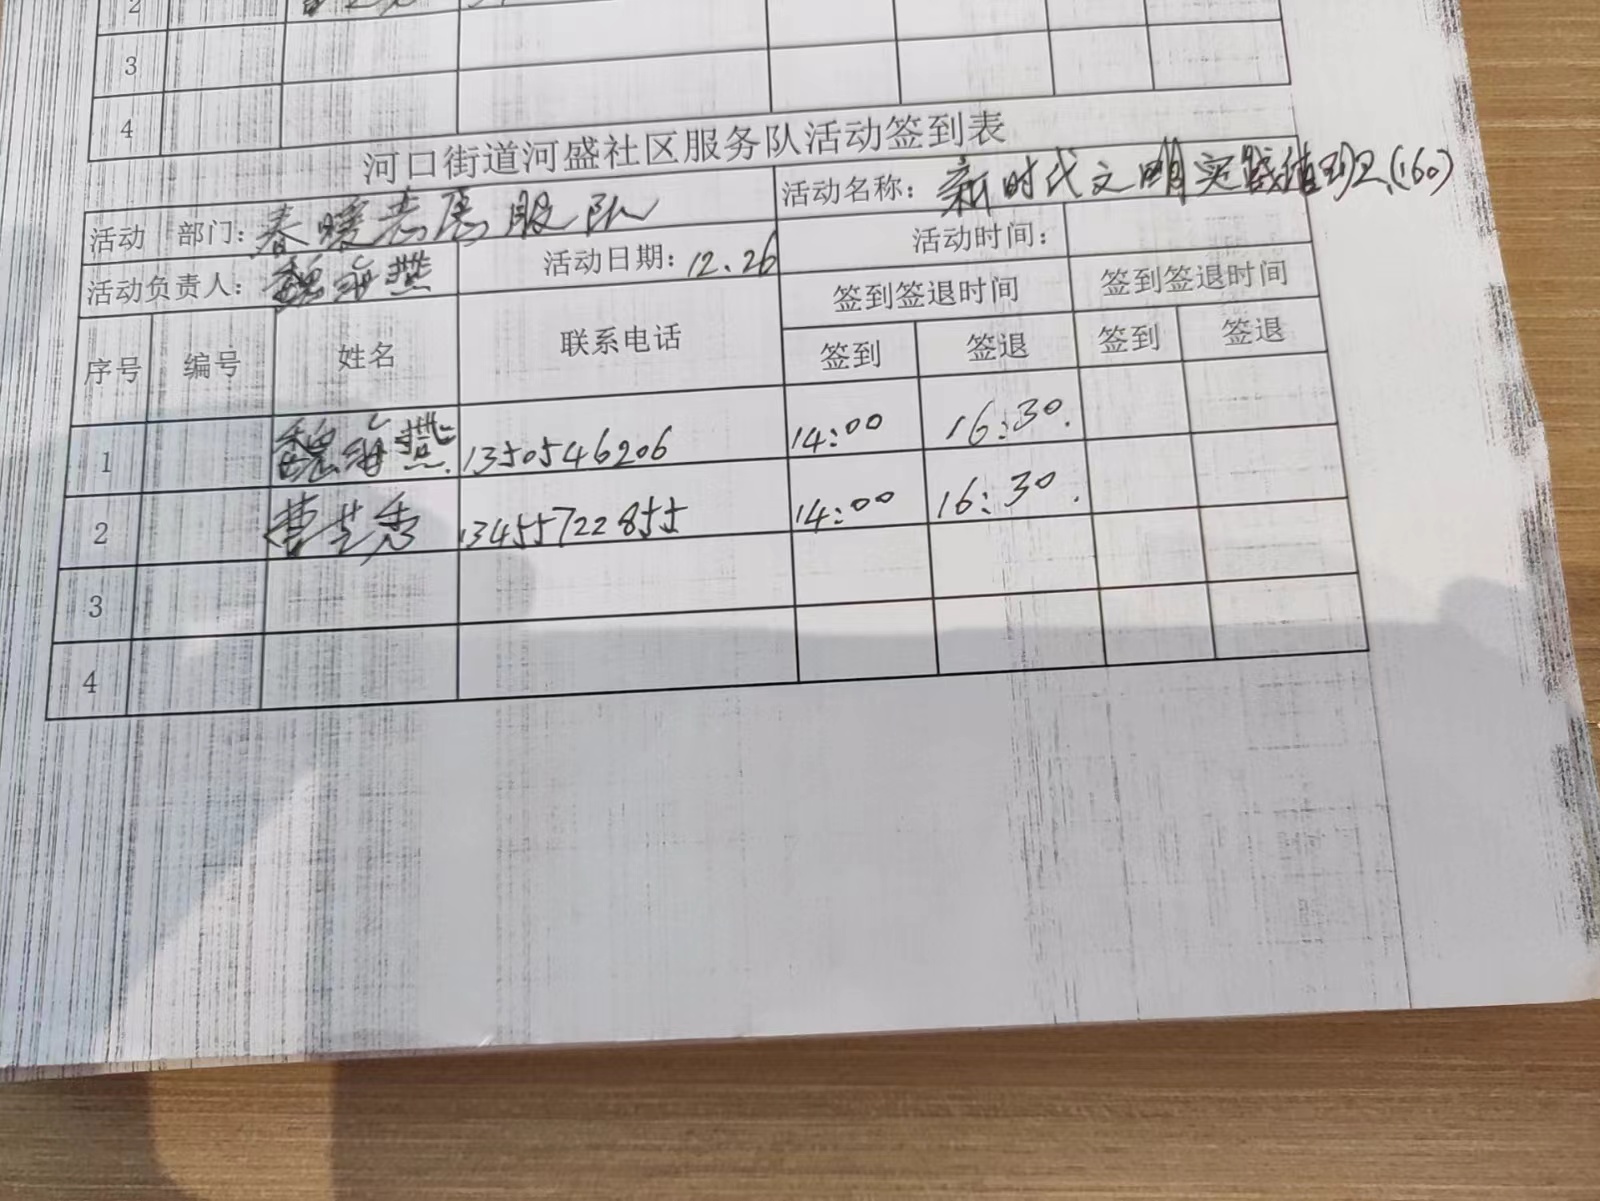 2
3
4
河口街道河盛社区服务队活动签到表
活动 部门：春暖志愿服队 活动名称：新时代文明实践值班(160)
活动负责人：魏海燕 活动日期：12.26 活动时间：
序号 编号 姓名 联系电话 签到签退时间 签到签退时间
签到 签退 签到 签退
1 魏海燕 1350546206 14:00 16:30.
2 曹芝秀 13455722855 14:00 16:30.
3
4